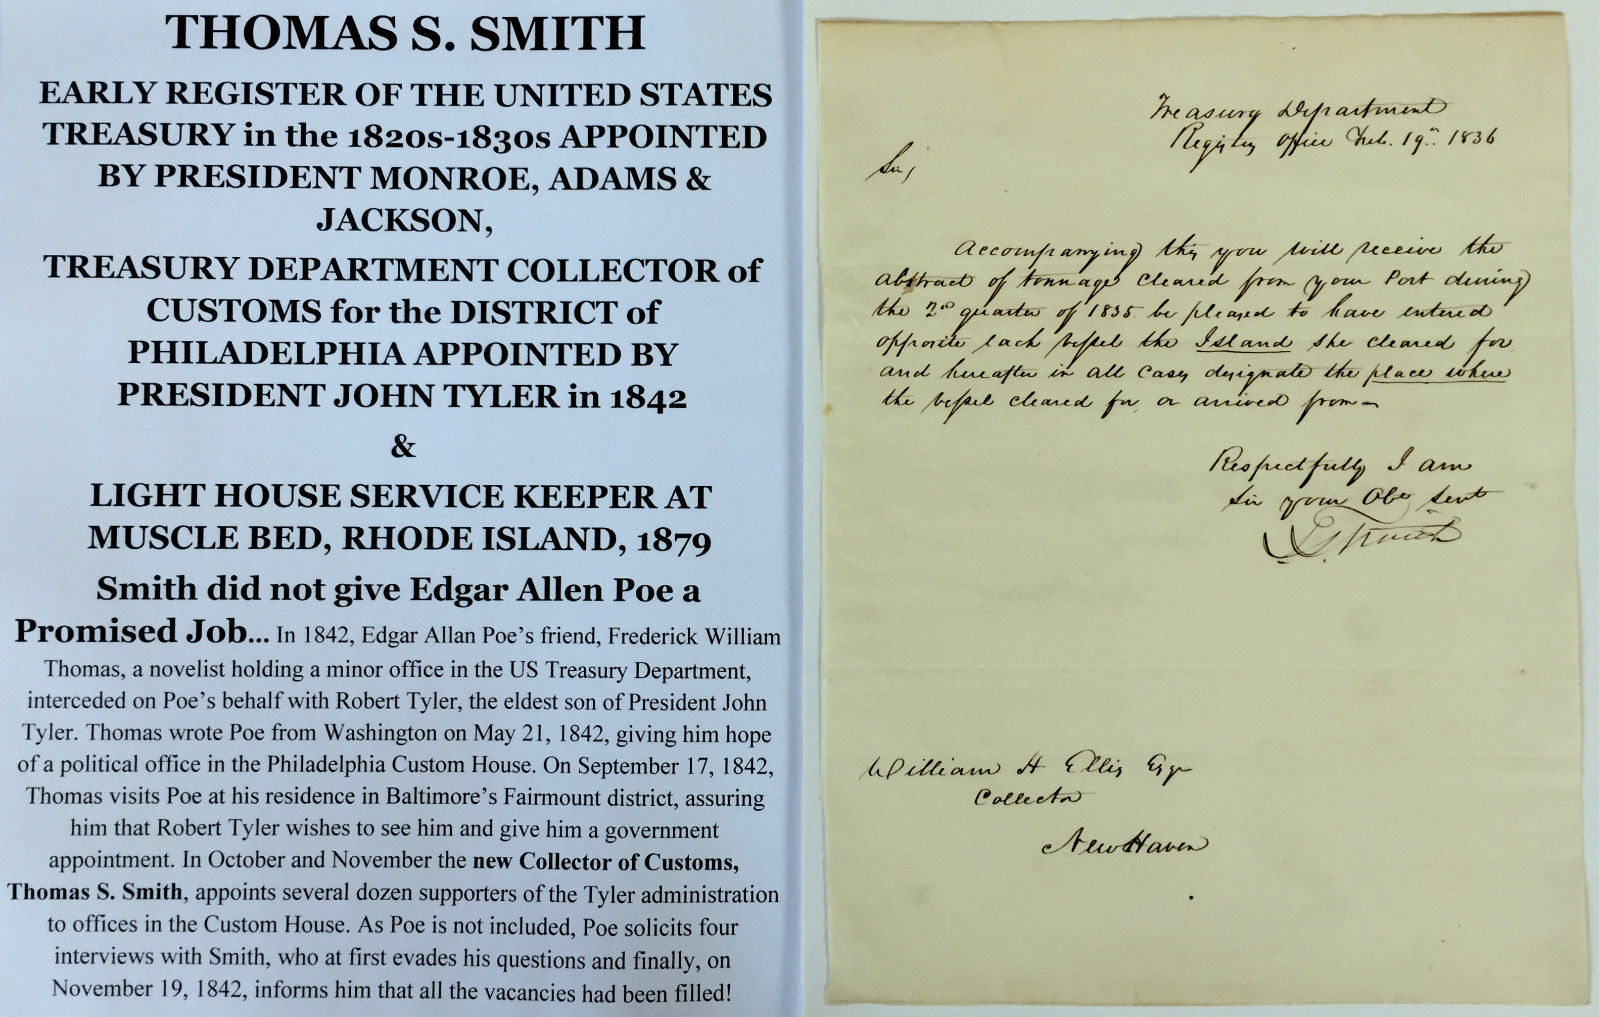 THOMAS S. SMITH
EARLY REGISTER OF THE UNITED STATES
TREASURY in the 1820s-1830s APPOINTED
BY PRESIDENT MONROE, ADAMS &
JACKSON,
TREASURY DEPARTMENT COLLECTOR of
CUSTOMS for the DISTRICT of
PHILADELPHIA APPOINTED BY
PRESIDENT JOHN TYLER in 1842
&
LIGHT HOUSE SERVICE KEEPER AT
MUSCLE BED, RHODE ISLAND, 1879
Smith did not give Edgar Allen Poe a
Promised Job... In 1842, Edgar Allan Poe's friend, Frederick William
Thomas, a novelist holding a minor office in the US Treasury Department,
interceded on Poe's behalf with Robert Tyler, the eldest son of President John
Tyler. Thomas wrote Poe from Washington on May 21, 1842, giving him hope
of a political office in the Philadelphia Custom House. On September 17, 1842,
Thomas visits Poe at his residence in Baltimore's Fairmount district, assuring
him that Robert Tyler wishes to see him and give him a government
appointment. In October and November the new Collector of Customs,
Thomas S. Smith, appoints several dozen supporters of the Tyler administration
to offices in the Custom House. As Poe is not included, Poe solicits four
interviews with Smith, who at first evades his questions and finally, on
November 19, 1842, informs him that all the vacancies had been filled!
Treasury Department
Registers Office Feb. 19th 1836
Sir,
Accompanying this you will receive the
abstract of tonnage cleared from your Port during
the 2nd quarter of 1835 be pleased to have entered
opposite each vessel the Island she cleared for
and hereafter in all cases designate the place where
the vessel cleared for or arrived from—
Respectfully I am
Sir your Obt Servt
T. L. Smith
William H Ellis Esqr
Collector
New Haven